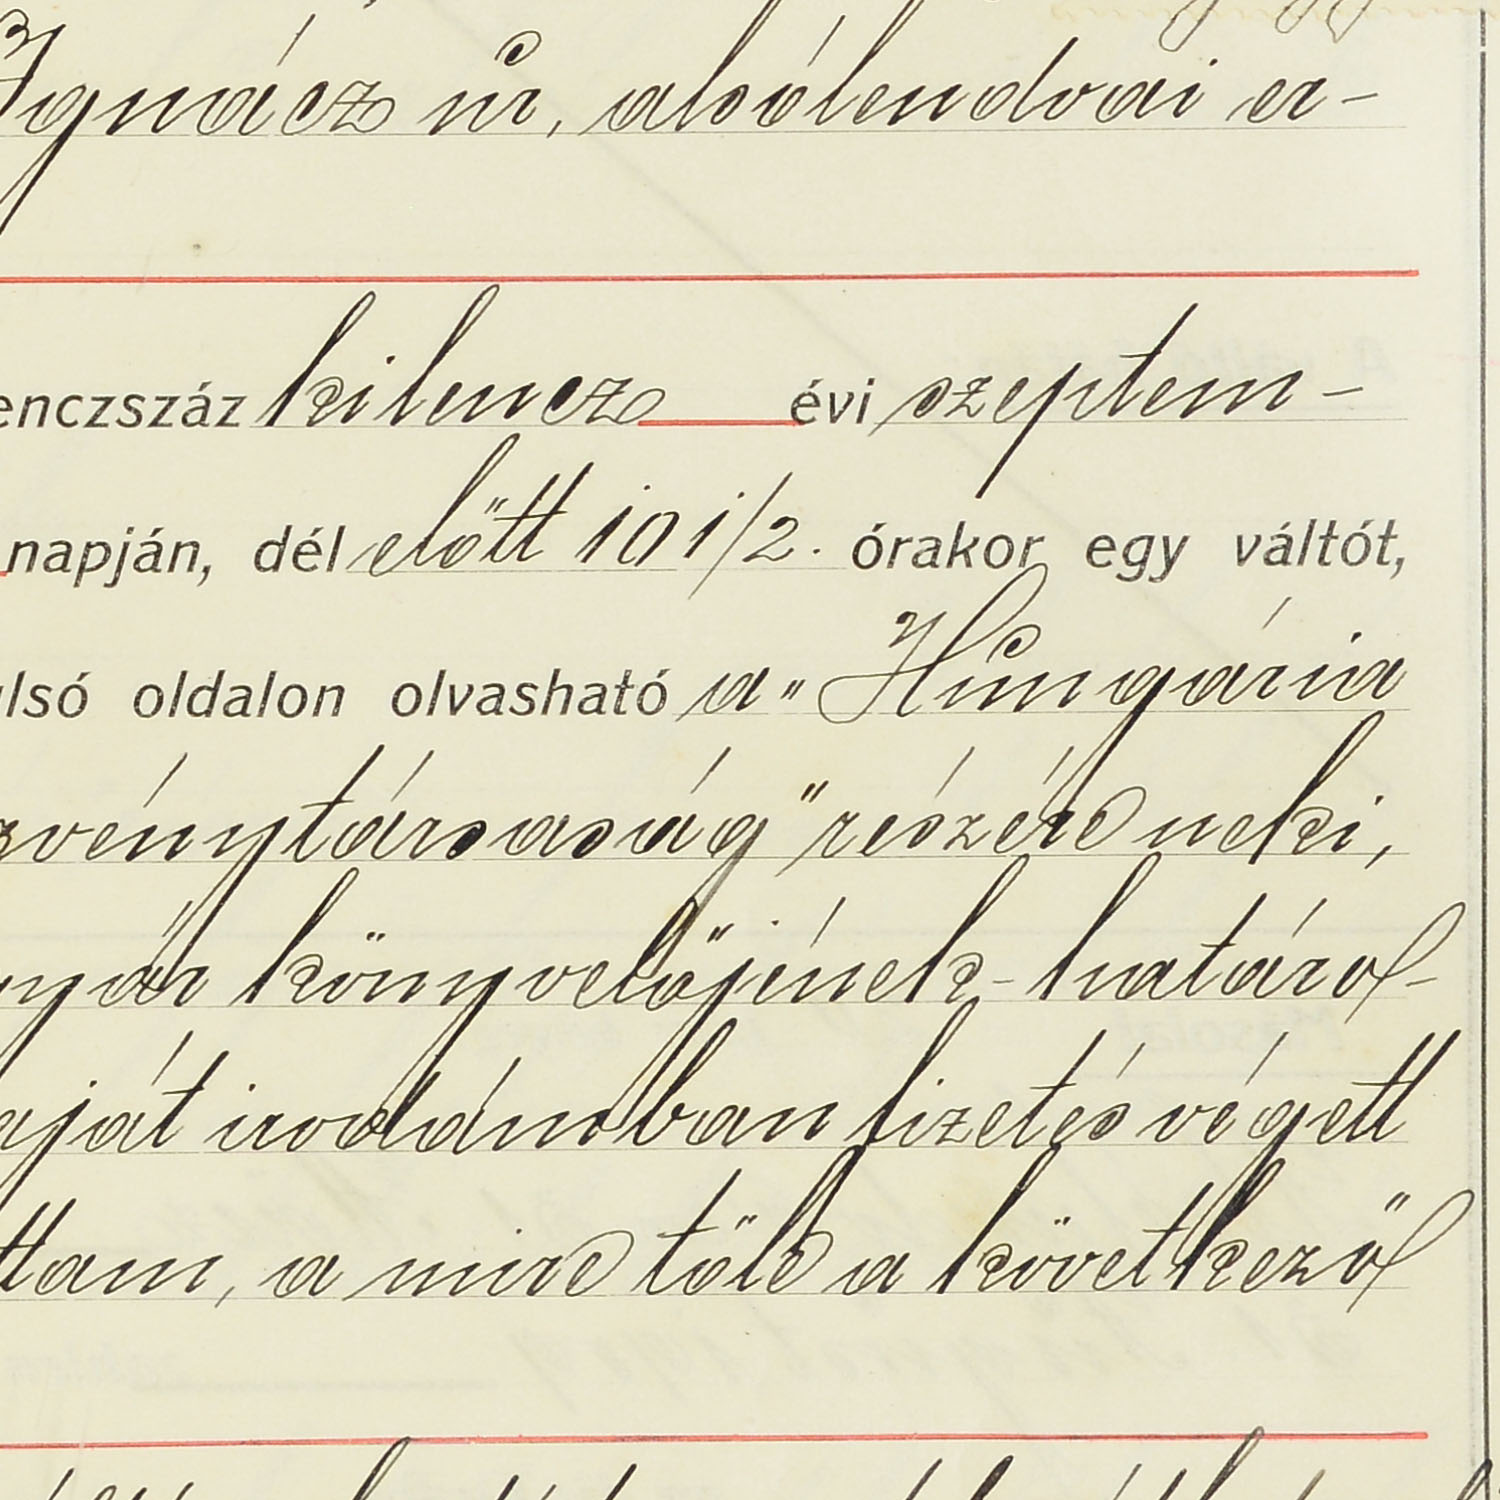 Ignácz úr, alsólendvai er-
enczszáz kilencz évi szeptem-
napján, dél előtt 10 1/2. órakor egy váltót,
ulsó oldalon olvasható a „Hungária
zvénytársaság" részére neki,
könyvelőjének - határo-
aját irodámban fizetés végett
ttam, a mire tőle a következő